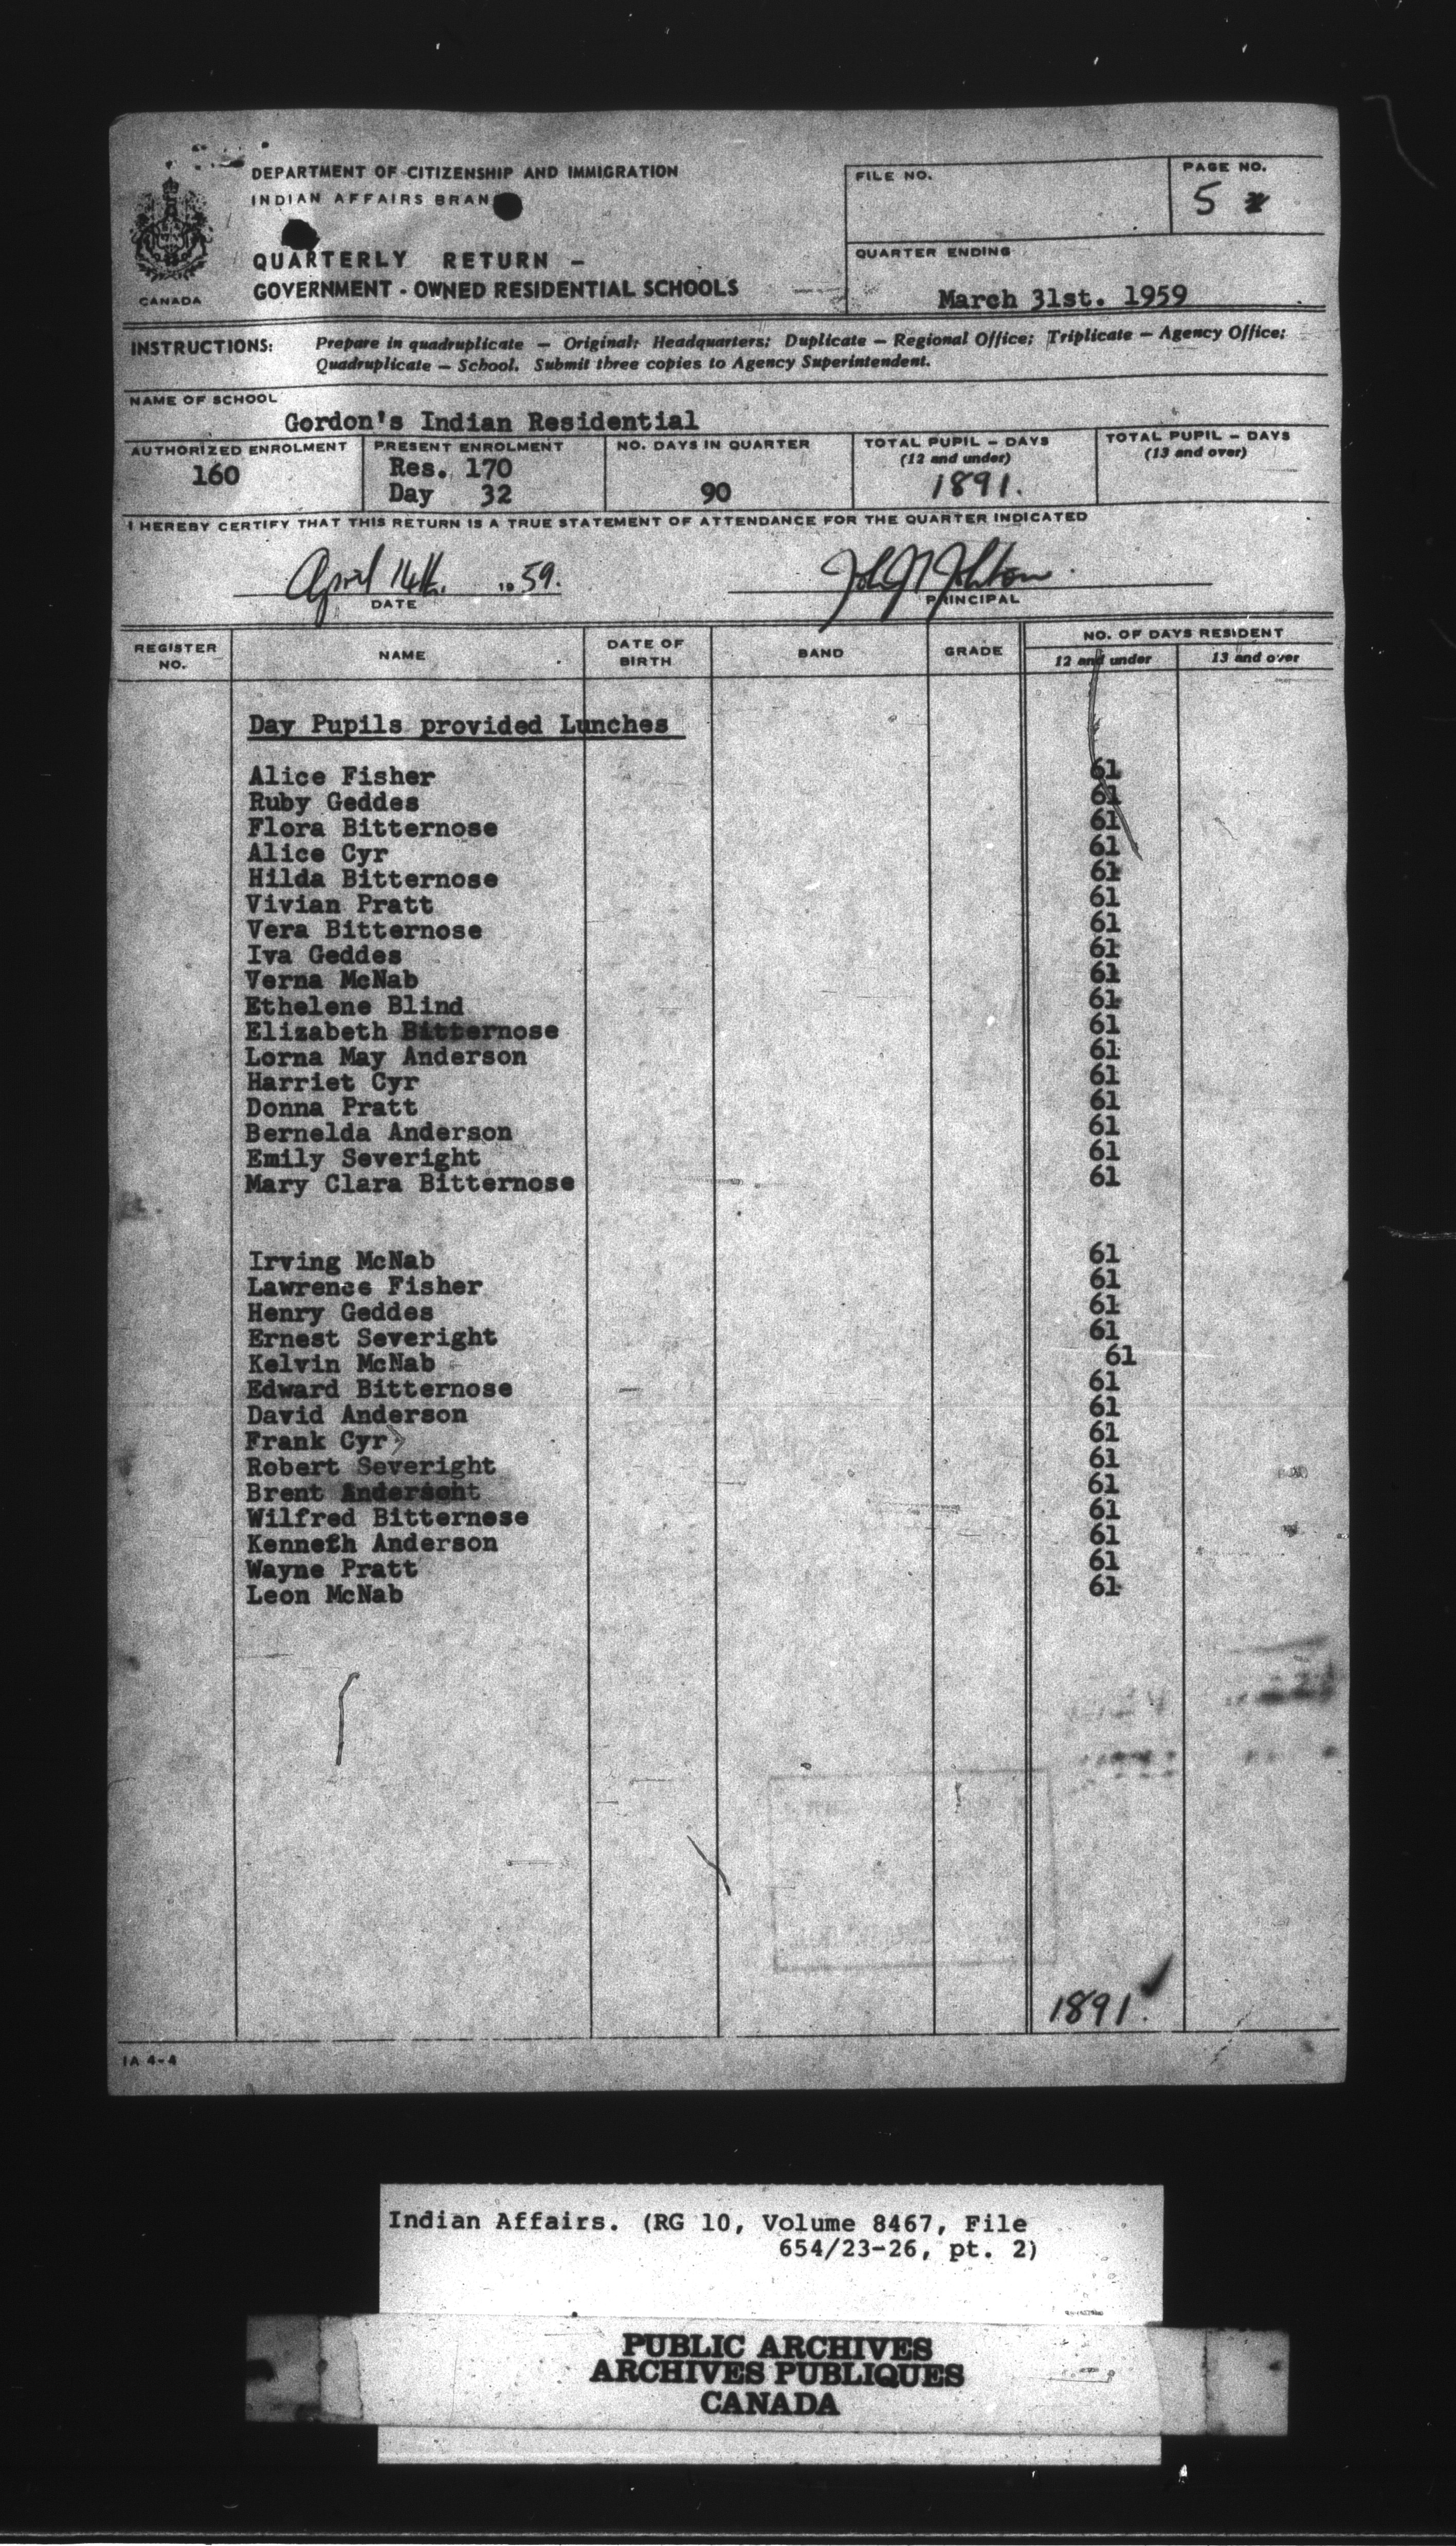 DEPARTMENT OF CITIZENSHIP AND IMMIGRATION
INDIAN AFFAIRS BRAN
CANADA
QUARTERLY RETURN -
GOVERNMENT - OWNED RESIDENTIAL SCHOOLS
FILE NO.
PAGE NO.
5
QUARTER ENDING
March 31st. 1959
INSTRUCTIONS: Prepare in quadruplicate — Original: Headquarters; Duplicate — Regional Office; Triplicate — Agency Office;
Quadruplicate — School. Submit three copies to Agency Superintendent.
NAME OF SCHOOL
Gordon's Indian Residential
AUTHORIZED ENROLMENT
160
PRESENT ENROLMENT
Res. 170
Day 32
NO. DAYS IN QUARTER
90
TOTAL PUPIL - DAYS
(12 and under)
1891.
TOTAL PUPIL - DAYS
(13 and over)
I HEREBY CERTIFY THAT THIS RETURN IS A TRUE STATEMENT OF ATTENDANCE FOR THE QUARTER INDICATED
April 14th. 19 59.
DATE
PRINCIPAL
REGISTER NO. NAME DATE OF BIRTH BAND GRADE NO. OF DAYS RESIDENT
12 and under 13 and over
Day Pupils provided Lunches
Alice Fisher 61
Ruby Geddes 61
Flora Bitternose 61
Alice Cyr 61
Hilda Bitternose 61
Vivian Pratt 61
Vera Bitternose 61
Iva Geddes 61
Verna McNab 61
Ethelene Blind 61
Elizabeth Bitternose 61
Lorna May Anderson 61
Harriet Cyr 61
Donna Pratt 61
Bernelda Anderson 61
Emily Severight 61
Mary Clara Bitternose 61
Irving McNab 61
Lawrence Fisher 61
Henry Geddes 61
Ernest Severight 61
Kelvin McNab 61
Edward Bitternose 61
David Anderson 61
Frank Cyr 61
Robert Severight 61
Brent Andersont 61
Wilfred Bitternese 61
Kenneth Anderson 61
Wayne Pratt 61
Leon McNab 61
1891.
IA 4-4
Indian Affairs. (RG 10, Volume 8467, File
654/23-26, pt. 2)
PUBLIC ARCHIVES
ARCHIVES PUBLIQUES
CANADA